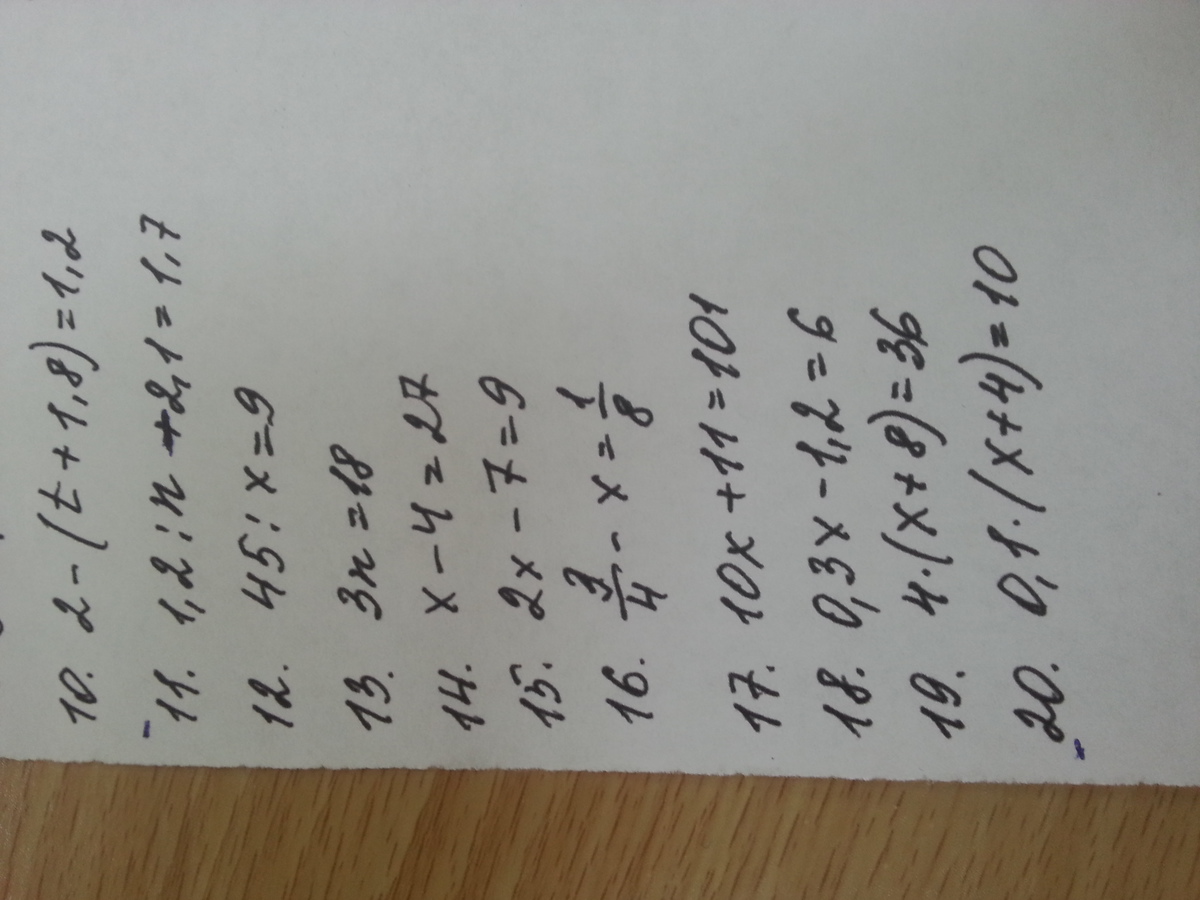 10. 2-(t+1,8)=1,2
11. 1,2:n+2,1=1,7
12. 45:x=9
13. 3n=18
14. x-4=27
15. 2x-7=9
16. 3/4-x=1/8
17. 10x+11=101
18. 0,3x-1,2=6
19. 4·(x+8)=36
20. 0,1·(x+4)=10